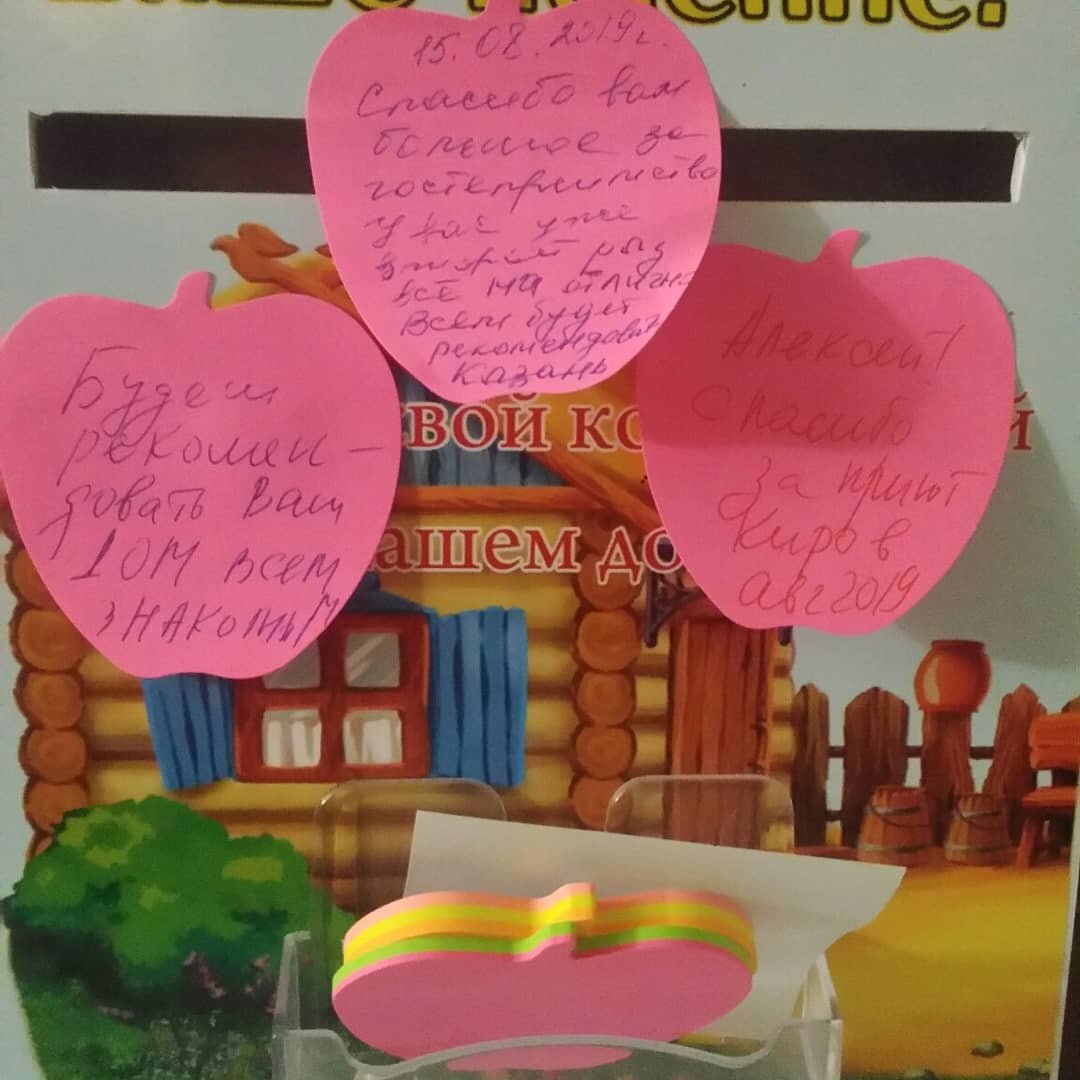 15.08.2019г.
Спасибо вам
большое за
гостеприимство
у вас уже
второй раз
всё на отлично
Всем будет
рекомендовать
Казань
Будем
рекомен-
довать Ваш
дом всем
знакомым
Алексей!
Спасибо
за приют
Киров
авг2019
свой
ашем